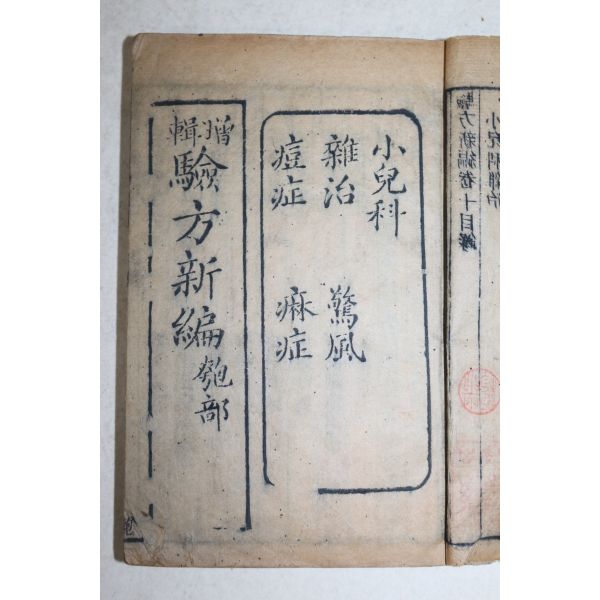 小兒科雜治
驗方新編卷十目錄
小兒科
雜治　驚風
痘症　痳症
增輯
驗方新編匏部
匏